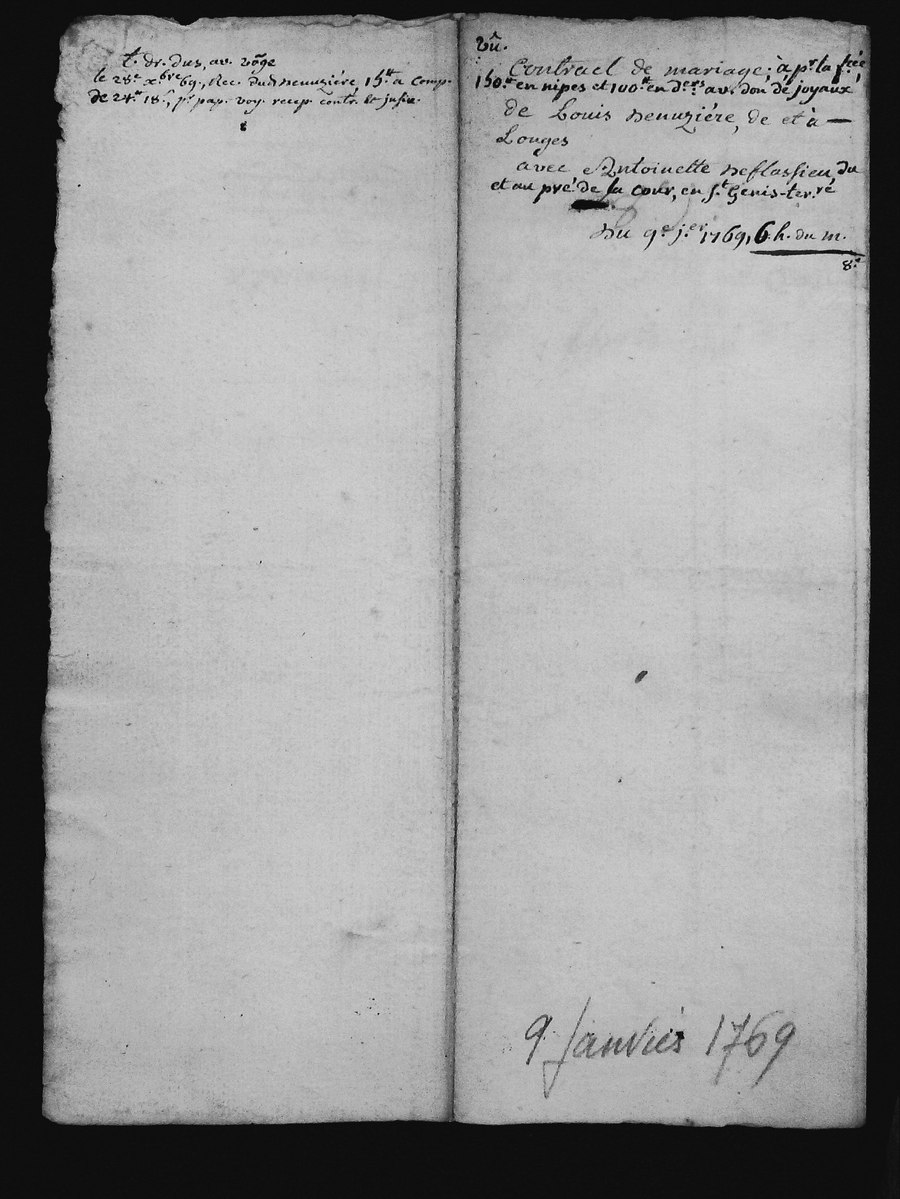 t. dr. dus, av. vöge
le 28e xbre 69, Rec. dud. Denuziére, 15# a Comp.
de 24# 18s, pr. pap. voy. recep. contr. et insin.
8
Vû.
Contract de mariage; à pr. la f.ée
150# en nipes et 100# en D.ers av. don de joyaux,
de Louis Denuziére, de et à —
Longes
avec Antoinette Deflassieu du
et au pré de la cour, en St. Genis-ter.ré
Du 9e j.er 1769, 6. h. du m.
8.
9 Janvier 1769